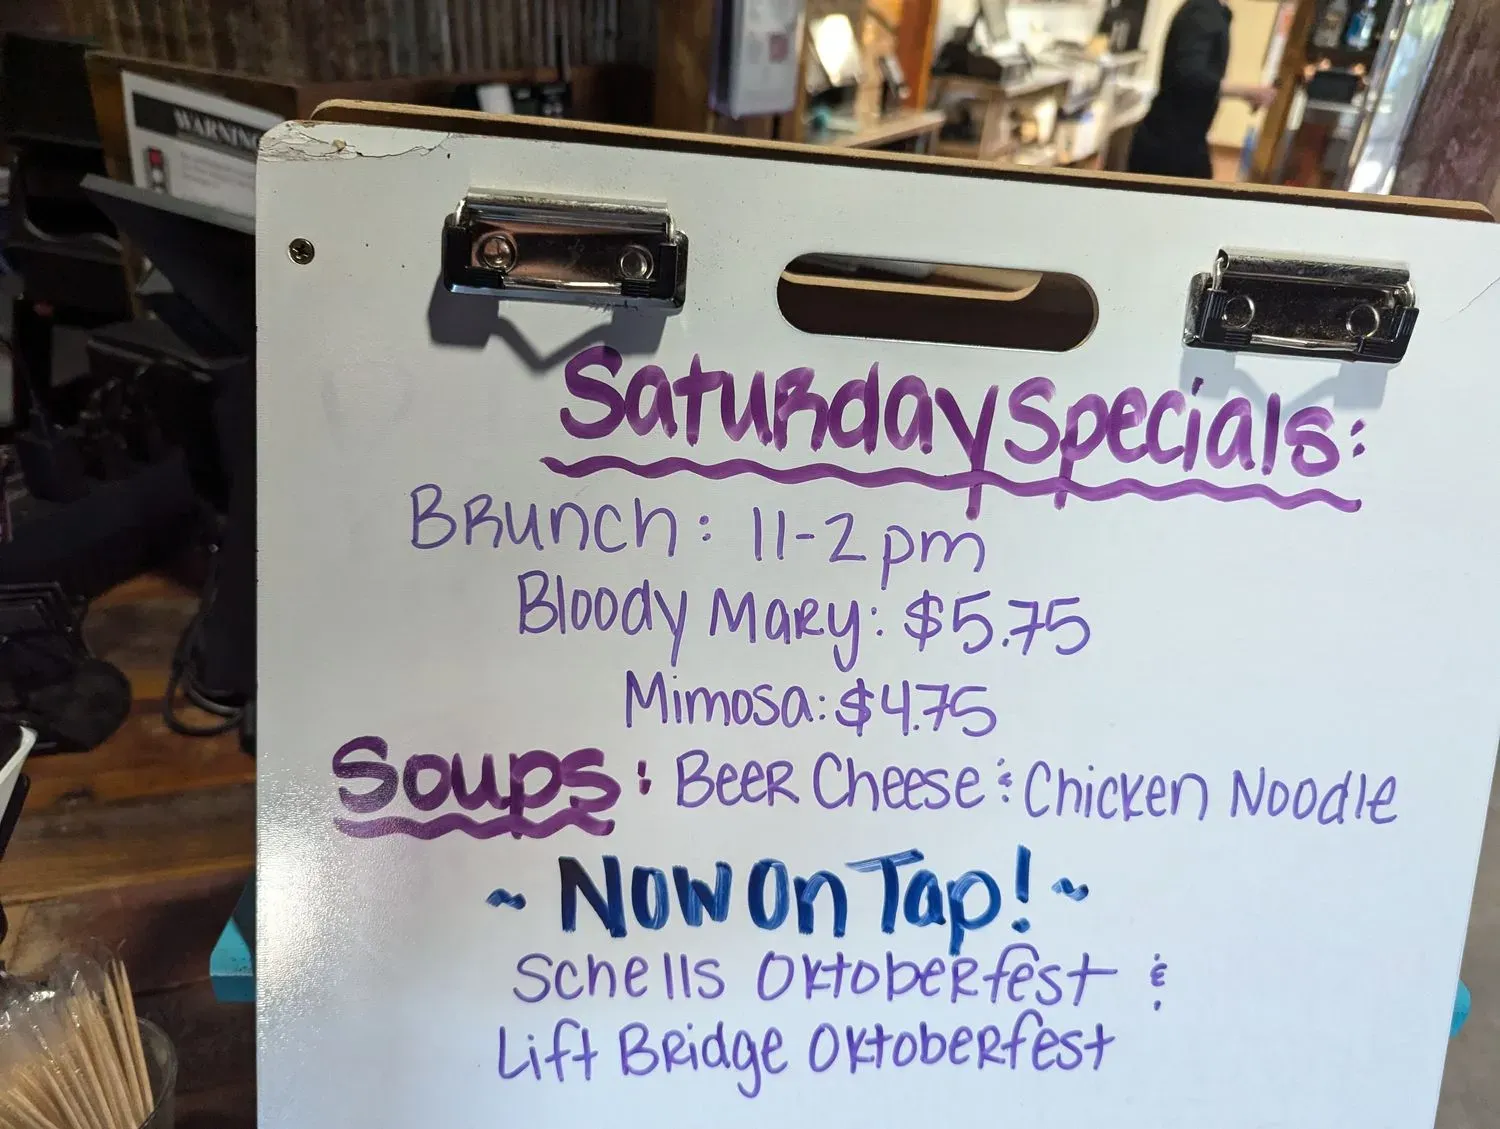 WARNING
Saturday Specials:
Brunch: 11-2pm
Bloody Mary: $5.75
Mimosa: $4.75
Soups: Beer Cheese & Chicken Noodle
~ Now On Tap! ~
Schells Oktoberfest &
Lift Bridge Oktoberfest